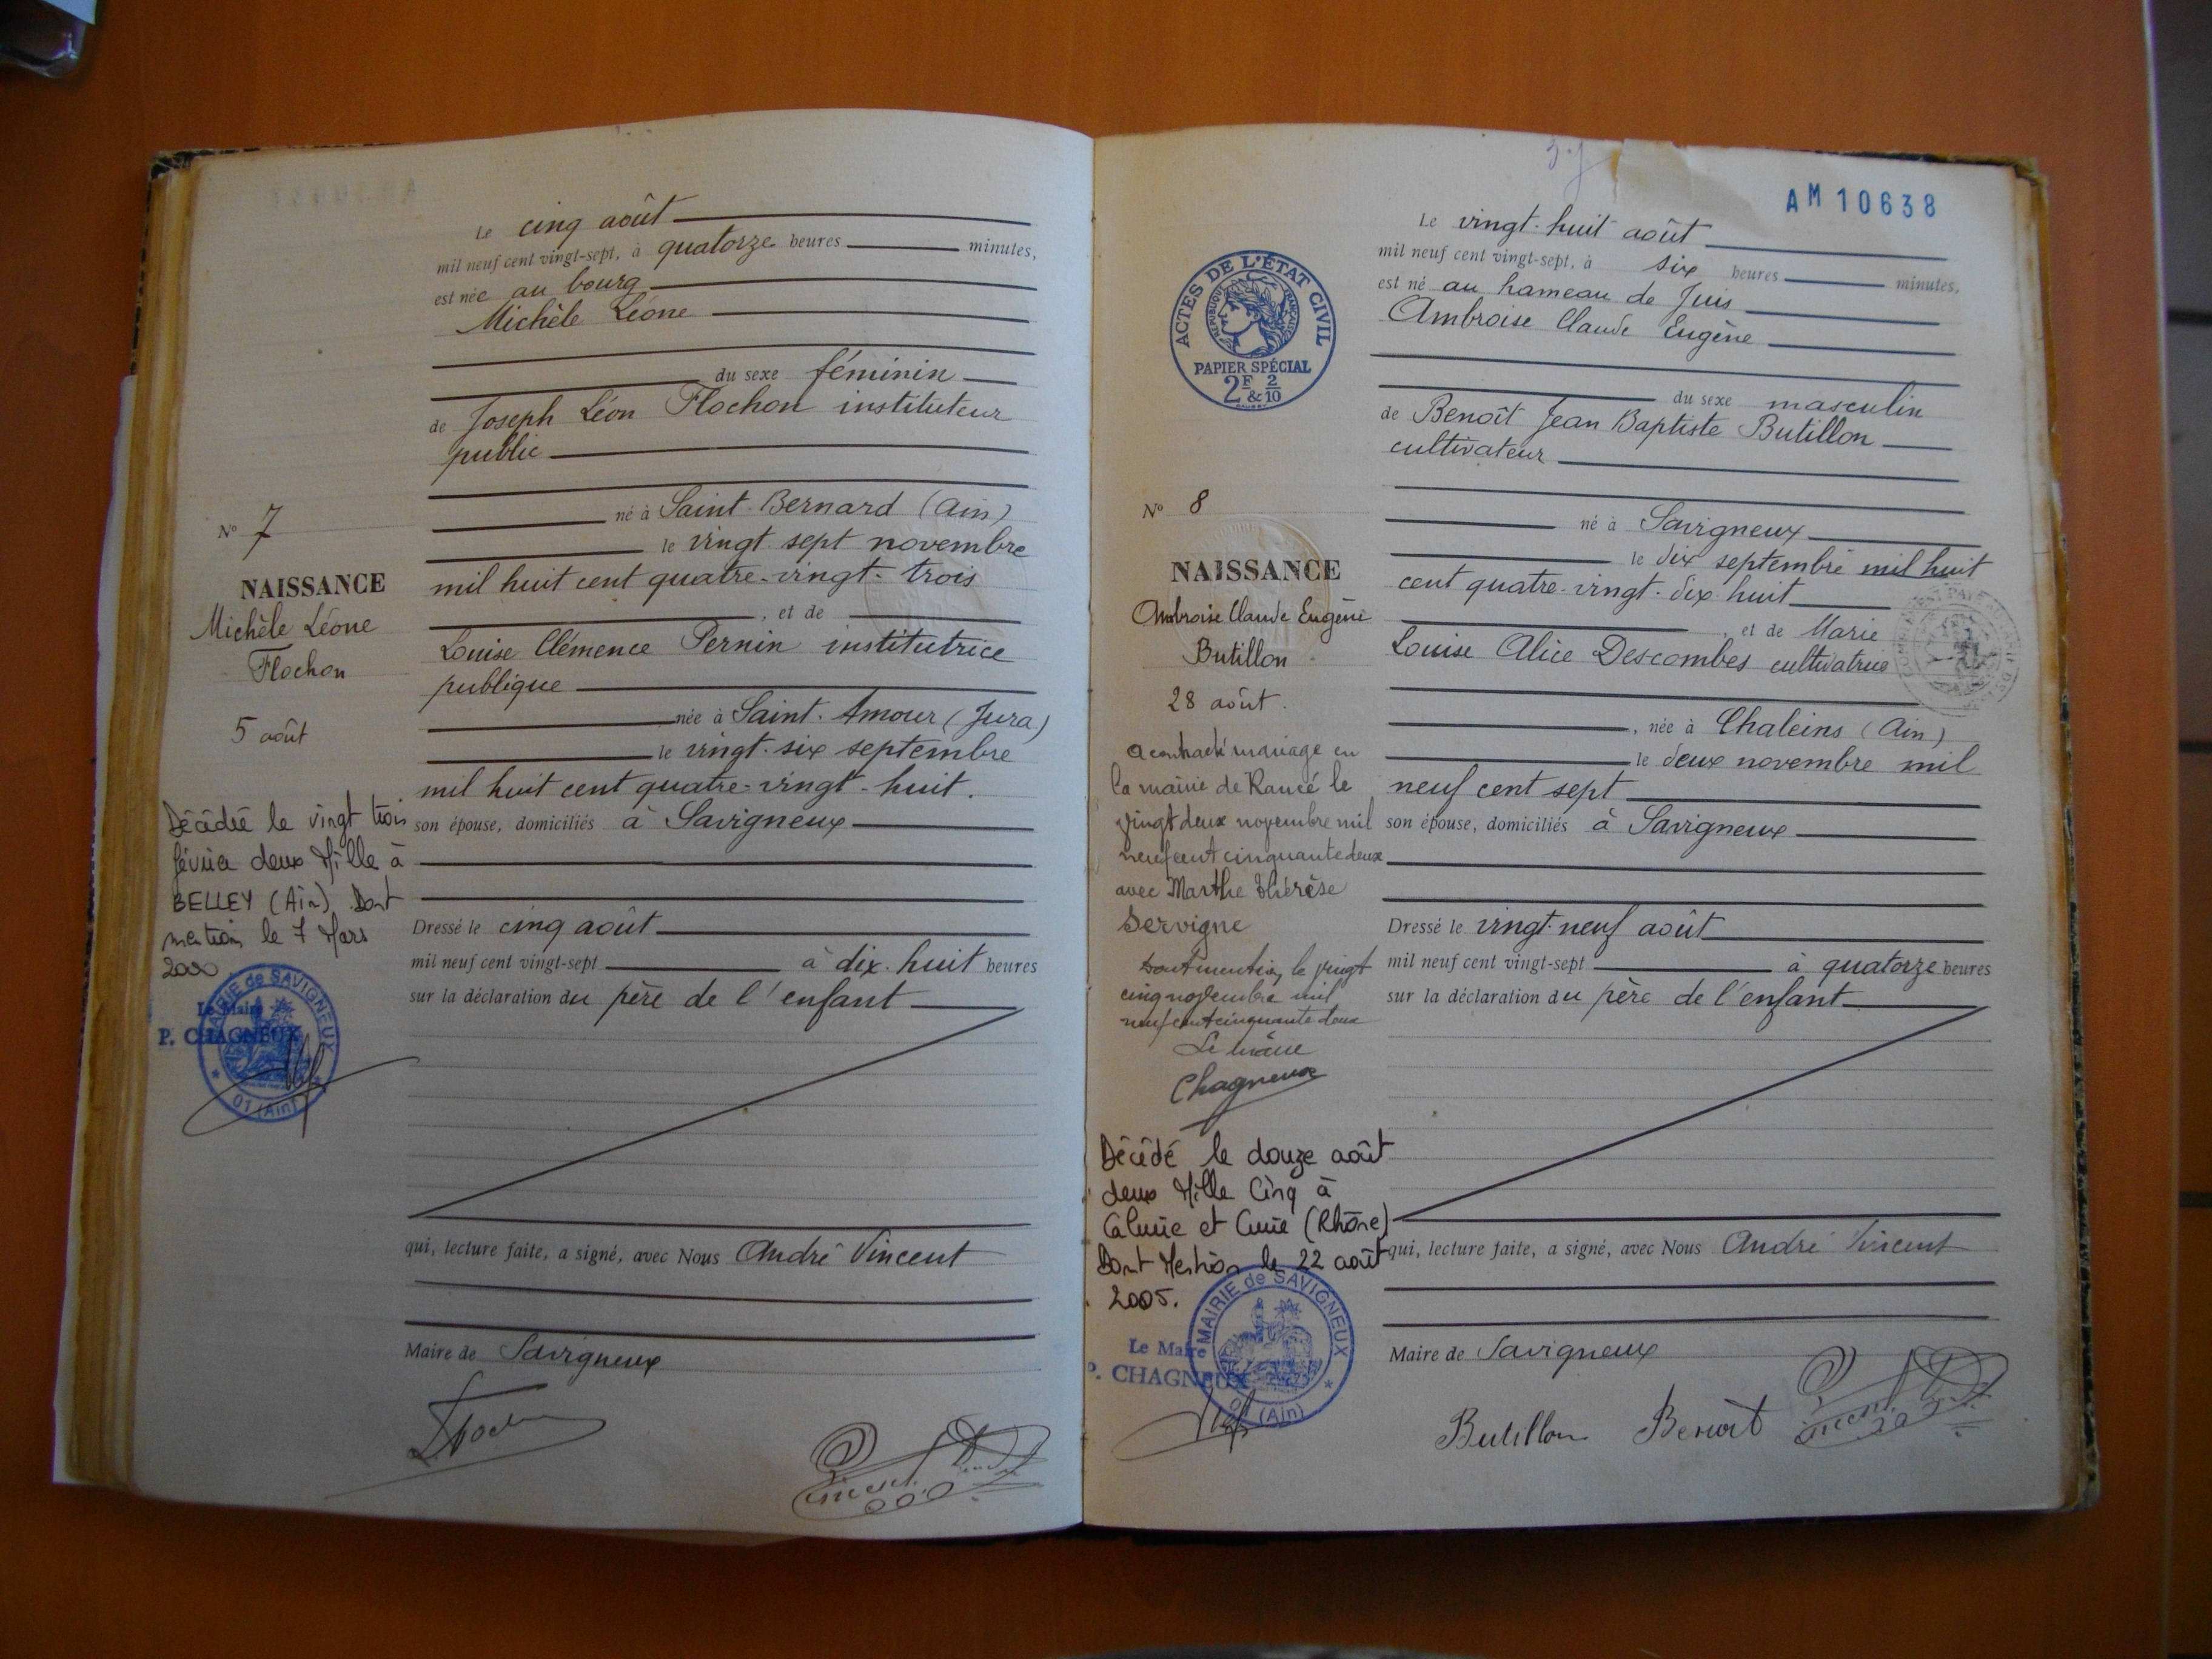 Le cinq août
mil neuf cent vingt-sept, à quatorze heures minutes,
est née au bourg
Michèle Léone
du sexe féminin
de Joseph Léon Flochon instituteur
public
né à Saint-Bernard (Ain)
le vingt sept novembre
mil huit cent quatre-vingt-trois
, et de
Louise Clémence Pernin institutrice
publique
née à Saint-Amour (Jura)
le vingt-six septembre
mil huit cent quatre-vingt-huit.
son épouse, domiciliés à Savigneux
Dressé le cinq août
mil neuf cent vingt-sept à dix-huit heures
sur la déclaration du père de l'enfant
qui, lecture faite, a signé, avec Nous André Vincent
Maire de Savigneux
N° 7
NAISSANCE
Michèle Léone
Flochon
5 août
Décédée le vingt trois
février deux Mille à
BELLEY (Ain). Dont
mention le 7 Mars
2000
MAIRIE de SAVIGNEUX
Le Maire
P. CHAGNEUX
01 (Ain)
AM 10638
Le vingt-huit août
mil neuf cent vingt-sept, à six heures minutes,
est né au hameau de Juis
Ambroise Claude Eugène
du sexe masculin
de Benoît Jean Baptiste Butillon
cultivateur
né à Savigneux
le dix septembre mil huit
cent quatre-vingt-dix-huit
, et de Marie
Louise Alice Descombes cultivatrice
, née à Chaleins (Ain)
le deux novembre mil
neuf cent sept
son épouse, domiciliés à Savigneux
Dressé le vingt-neuf août
mil neuf cent vingt-sept à quatorze heures
sur la déclaration du père de l'enfant
qui, lecture faite, a signé, avec Nous André Vincent
Maire de Savigneux
Butillon Benoît
ACTES DE L'ÉTAT CIVIL
RÉPUBLIQUE FRANÇAISE
PAPIER SPÉCIAL
2F & 2/10
N° 8
NAISSANCE
Ambroise Claude Eugène
Butillon
28 août.
a contracté mariage en
la mairie de Rancé le
vingt deux novembre mil
neuf cent cinquante deux
avec Marthe Thérèse
Servigne
Dont mention le vingt
cinq novembre mil
neuf cent cinquante deux
Le maire
Chagneux
Décédé le douze août
deux Mille Cinq à
Caluire et Cuire (Rhône)
Dont Mention le 22 août
2005.
MAIRIE de SAVIGNEUX
Le Maire
P. CHAGNEUX
01 (Ain)